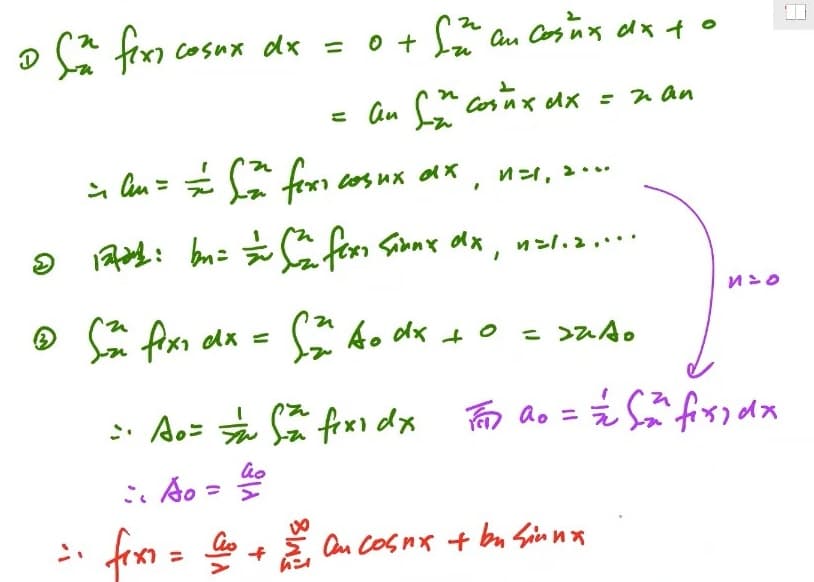 ① ∫_{-π}^{π} f(x) cosnx dx = 0 + ∫_{-π}^{π} an cos²nx dx + 0
= an ∫_{-π}^{π} cos²nx dx = π an
∴ an = 1/π ∫_{-π}^{π} f(x) cosnx dx, n=1, 2...
② 同理: bn = 1/π ∫_{-π}^{π} f(x) sinnx dx, n=1.2....
n=0
③ ∫_{-π}^{π} f(x) dx = ∫_{-π}^{π} A₀ dx + 0 = 2πA₀
∴ A₀ = 1/2π ∫_{-π}^{π} f(x) dx 而 a₀ = 1/π ∫_{-π}^{π} f(x) dx
∴ A₀ = a₀/2
∴ f(x) = a₀/2 + ∑_{n=1}^{∞} an cosnx + bn sinnx